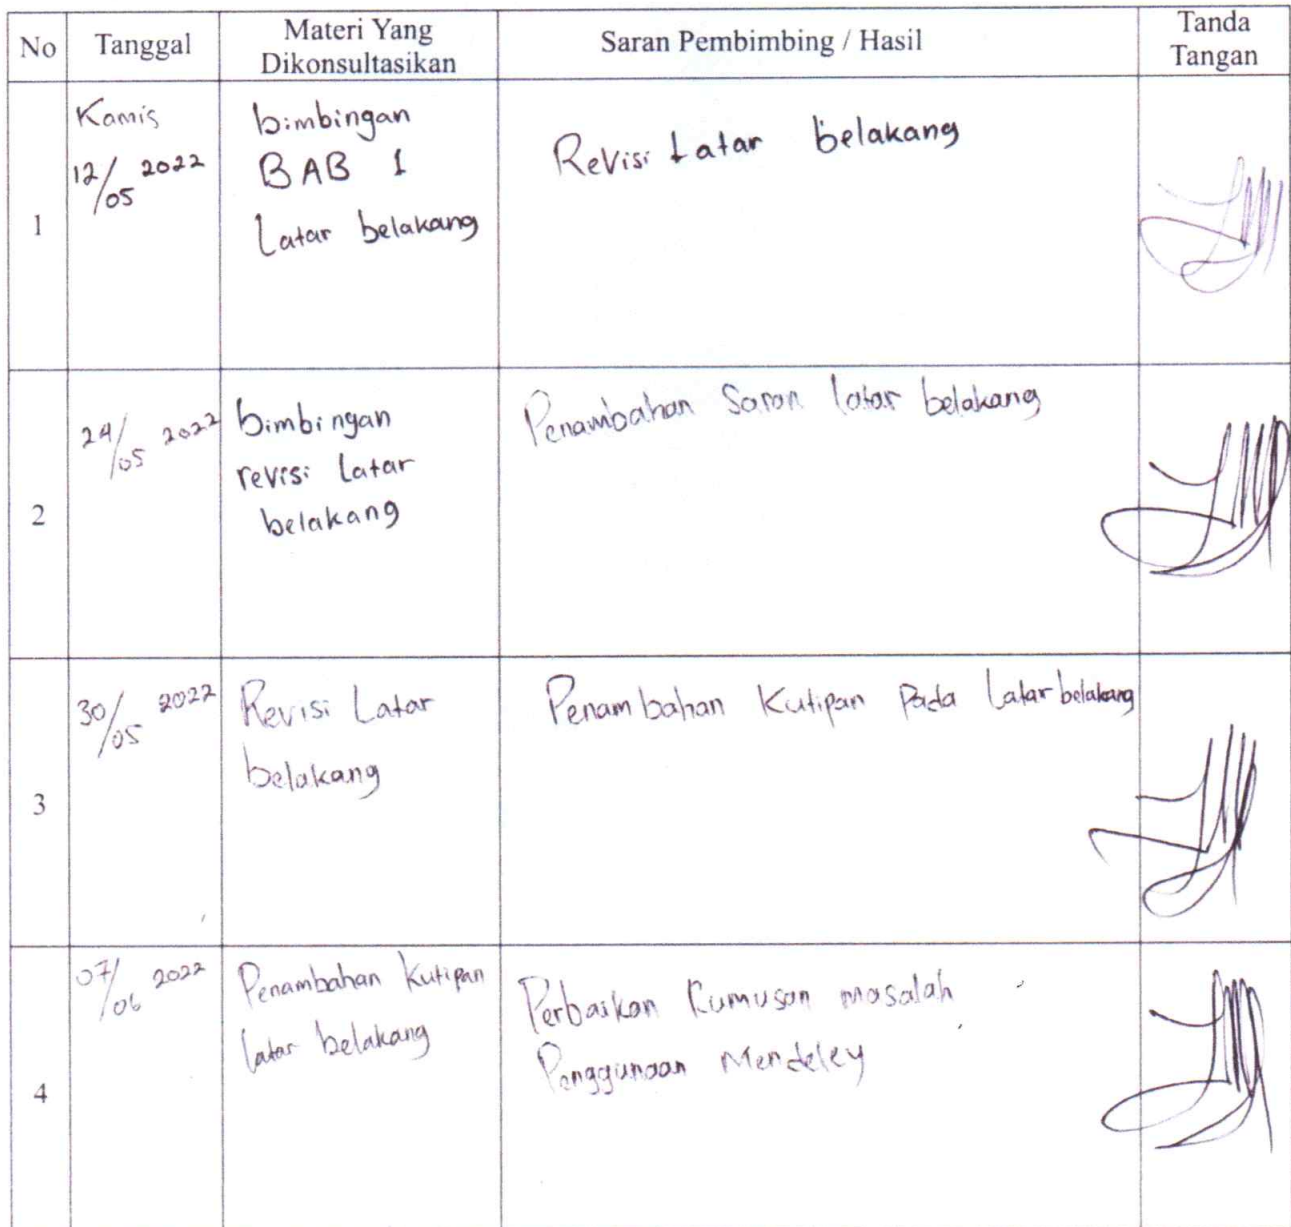 No
Tanggal
Materi Yang
Dikonsultasikan
Saran Pembimbing / Hasil
Tanda
Tangan
1
Kamis
12/05 2022
bimbingan
BAB 1
Latar belakang
Revisi Latar belakang
2
24/05 2022
bimbingan
revisi Latar
belakang
Penambahan Saran latar belakang
3
30/05 2022
Revisi Latar
belakang
Penambahan Kutipan Pada Latar belakang
4
07/06 2022
Penambahan Kutipan
latar belakang
Perbaikan Rumusan masalah
Penggunaan Mendeley